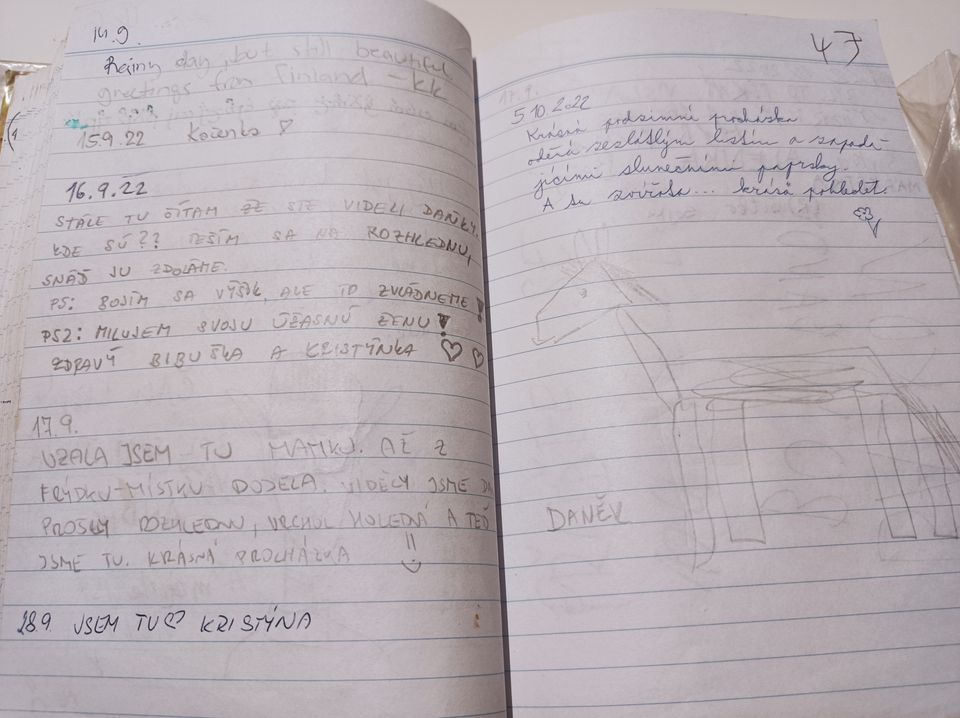 14.9.
Rainy day, but still beautiful
greetings from Finland - kk
15.9.22 Kočenka
16.9.22
STÁLE TU ČÍTAM ŽE STE VIDELI DAŇKY.
KDE SÚ?? TEŠÍM SA NA ROZHLEDNU,
SNÁĎ JU ZDOLÁME.
PS: BOJÍM SA VÝŠIK, ALE TO ZVLÁDNEME!
PS2: MILUJEM SVOJU ÚŽASNÚ ŽENU!
ZDRAVÝ BIBUŠKA A KRISTÝNKA
17.9.
VZALA JSEM TU MAMKU. AŽ Z
FRÝDKU-MÍSTKU DOJELA. VIDĚLY JSME
PROŠLY ROZHLEDNU, VRCHOL HOLEDNÁ A TEĎ
JSME TU. KRÁSNÁ PROCHÁZKA
28.9. JSEM TU KRISTÝNA
47
5.10.2022
Krásná podzimní procházka
oděná zezlátlým listím a zapada-
jícími slunečními paprsky.
A ta zvířata... krása pohledět.
DANĚK